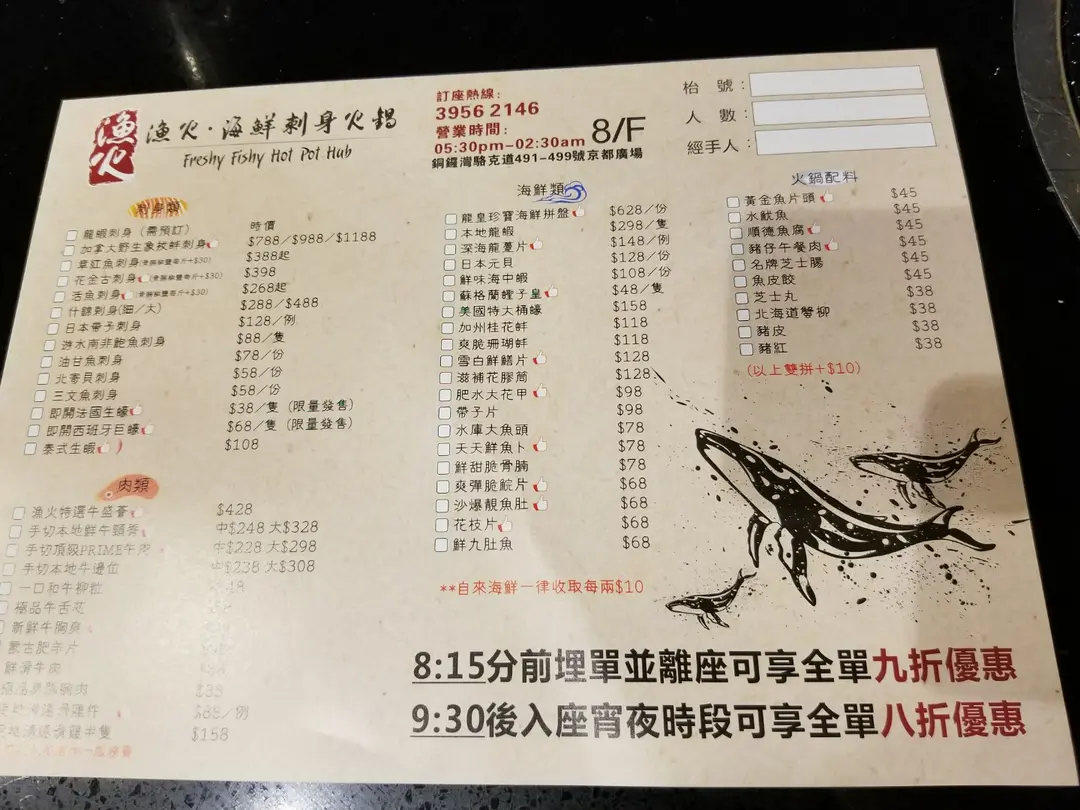 漁火
漁火·海鮮刺身火鍋
Freshy Fishy Hot Pot Hub
訂座熱線:
3956 2146
營業時間:
05:30pm-02:30am 8/F
銅鑼灣駱克道491-499號京都廣場
枱 號:
人 數:
經手人:
龍蝦刺身(需預訂) 時價
加拿大野生象拔蚌刺身 $788/$988/$1188
章紅魚刺身 $388起
花金古刺身 $398
活魚刺身 $268起
什錦刺身(細/大) $288/$488
日本帶子刺身 $128/例
游水南非鮑魚刺身 $88/隻
油甘魚刺身 $78/份
北寄貝刺身 $58/份
三文魚刺身 $58/份
即開法國生蠔 $38/隻 (限量發售)
即開西班牙巨蠔 $68/隻 (限量發售)
泰式生蝦 $108
肉類
漁火特選牛盛薈 $428
手切本地鮮牛頸脊 中$248 大$328
手切頂級PRIME牛肉 中$228 大$298
手切本地牛邊位 中$238 大$308
一口和牛柳粒
極品牛舌芯
新鮮牛胸爽
蒙古肥羊片
鮮滑牛肉
$88/例
$158
海鮮類
龍皇珍寶海鮮拼盤 $628/份
本地龍蝦 $298/隻
深海龍躉片 $148/例
日本元貝 $128/份
鮮味海中蝦 $108/份
蘇格蘭蟶子皇 $48/隻
美國特大桶蠔 $158
加州桂花蚌 $118
爽脆珊瑚蚌 $118
雪白鮮鱔片 $128
滋補花膠筒 $128
肥水大花甲 $98
帶子片 $98
水庫大魚頭 $78
天天鮮魚卜 $78
鮮甜脆骨腩 $78
爽彈脆鯇片 $68
沙爆靚魚肚 $68
花枝片 $68
鮮九肚魚 $68
**自來海鮮一律收取每兩$10
火鍋配料
黃金魚片頭 $45
水魷魚 $45
順德魚腐 $45
豬仔午餐肉 $45
名牌芝士腸 $45
魚皮餃 $45
芝士丸 $38
北海道蟹柳 $38
豬皮 $38
豬紅 $38
(以上雙拼+$10)
8:15分前埋單並離座可享全單九折優惠
9:30後入座宵夜時段可享全單八折優惠